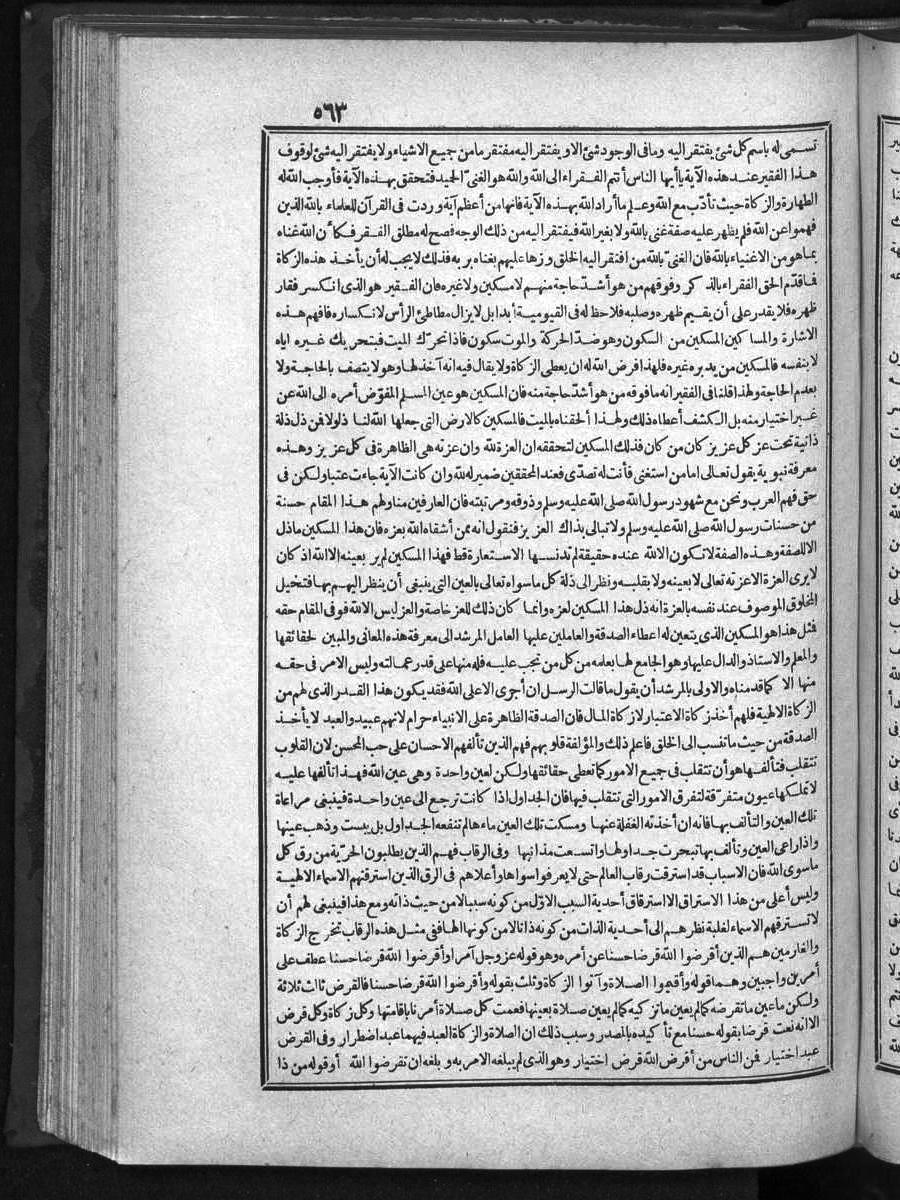 ٥٦٣
تسمى له باسم كل شئ يفتقر اليه وما فى الوجود شئ الا ويفتقر اليه مفتقر ما من جميع الاشياء ولا يفتقر اليه شئ لوقوف
هذا الفقير عند هذه الآية يا أيها الناس أنتم الفقراء الى الله والله هو الغنىّ الحميد فتحقق بهذه الآية فأوجب الله له
الطهارة والزكاة حيث تأدّب مع الله وعلم ما أراد الله بهذه الآية فانها من أعظم آية وردت فى القرآن للعلماء بالله الذين
فهموا عن الله فلم يظهر عليه صفة غنى بالله ولا بغير الله فيفتقر اليه من ذلك الوجه فصح له مطلق الفقر فكأن الله غناه
بما هو من الاغنياء بالله فان الغنىّ بالله من افتقر اليه الخلق وزها عليهم بغناه بربه فذلك لا يجب له أن يأخذ هذه الزكاة
فما قدّم الحق الفقراء بالذكر وفوقهم من هو أشدّ حاجة منهم لا مسكين ولا غيره فان الفقير هو الذى انكسر فقار
ظهره فلا يقدر على أن يقيم ظهره وصلبه فلا حظ له فى القيومية أبدا بل لا يزال مطاطئ الرأس لانكساره فافهم هذه
الاشارة والمساكين المسكين من السكون وهو ضدّ الحركة والموت سكون فاذا تحرّك الميت فبتحريك غيره اياه
لا بنفسه فالمسكين من يدبره غيره فلهذا فرض الله له ان يعطى الزكاة ولا يقال فيه انه آخذ لها وهو لا يتصف بالحاجة ولا
بعدم الحاجة ولهذا قلنا فى الفقير انه ما فوقه من هو أشدّ حاجة منه فان المسكين هو عين المسلم المفوّض أمره الى الله عن
غير اختيار منه بل الكشف أعطاه ذلك ولهذا ألحقناه بالميت فالمسكين كالارض التى جعلها الله لنا ذلولا فمن ذل ذلة
ذاتية تحت عز كل عزيز كان من كان فذلك المسكين لتحققه ان العزة لله وان عزته هى الظاهرة فى كل عزيز وهذه
معرفة نبوية يقول تعالى اما من استغنى فأنت له تصدّى فعند المحققين ضمير له لله وان كانت الآية جاءت عتبا ولكن فى
حق فهم العرب ونحن مع شهود رسول الله صلى الله عليه وسلم وذوقه ومرتبته فان العارفين منا ولهم هذا المقام حسنة
من حسنات رسول الله صلى الله عليه وسلم ولا تبالى بذاك العزيز فنقول انه ممن أشقاه الله بعزه فان هذا المسكين ما ذل
الا للصفة وهذه الصفة لا تكون الا لله عنده حقيقة لم تدنسها الاستعارة قط فهذا المسكين لم ير بعينه الا الله اذ كان
لا يرى العزة الا عزته تعالى لا بعينه ولا بقلبه ونظر الى ذلة كل ما سواه تعالى بالعين التى ينبغى أن ينظر اليهم بها فتخيل
المخلوق الموصوف عند نفسه بالعزة انه ذل هذا المسكين لعزه وانما كان ذلك للعز خاصة والعز ليس الا لله فوفى المقام حقه
فمثل هذا هو المسكين الذى يتعين له اعطاء الصدقة والعاملين عليها العامل المرشد الى معرفة هذه المعانى والمبين لحقائقها
والمعلم والاستاذ والدال عليها وهو الجامع لها بعلمه من كل من تجب عليه فله منها على قدر عمالته وليس الامر فى حقه
منها الا كما قدمناه والاولى بالمرشد أن يقول ما قالت الرسل ان أجرى الا على الله فقد يكون هذا القدر الذى لهم من
الزكاة الالهية فلهم أخذ زكاة الاعتبار لا زكاة المال فان الصدقة الظاهرة على الانبياء حرام لانهم عبيد والعبد لا يأخذ
الصدقة من حيث ما تنسب الى الخلق فاعلم ذلك والمؤلفة قلوبهم فهم الذين تألفهم الاحسان على حب المحسن لان القلوب
تتقلب فتألفها هو أن تتقلب فى جميع الامور كما تعطى حقائقها ولكن لعين واحدة وهى عين الله فهذا تألفها عليه
لا تملكها عيون متفرّقة لتفرق الامور التى تتقلب فيها فان الجداول اذا كانت ترجع الى عين واحدة فينبغى مراعاة
تلك العين والتألف بها فانه ان أخذته الغفلة عنها ومسكت تلك العين ماءها لم تنفعه الجداول بل يبست وذهب عينها
واذا راعى العين وتألف بها تبحرت جداولها واتسعت مذانبها وفى الرقاب فهم الذين يطلبون الحرّية من رق كل
ما سوى الله فان الاسباب قد استرقت رقاب العالم حتى لا يعرفوا سواها وأعلاهم فى الرق الذين استرقتهم الاسماء الالهية
وليس أعلى من هذا الاسترقاق الا استرقاق أحدية السبب الاوّل من كونه سببا لا من حيث ذاته ومع هذا فينبغى لهم أن
لا تسترقهم الاسماء لغلبة نظرهم الى أحدية الذات من كونه ذاتا لا من كونها الها ففى مثل هذه الرقاب تخرج الزكاة
والغارمين هم الذين أقرضوا الله قرضا حسنا عن أمره وهو قوله عز وجل آمرا وأقرضوا الله قرضا حسنا عطف على
أمرين واجبين وهما قوله وأقيموا الصلاة وآتوا الزكاة وثلث بقوله وأقرضوا الله قرضا حسنا فالقرض ثالث ثلاثة
ولكن ما عين ما تقرضه كما لم يعين ما تزكيه كما لم يعين صلاة بعينها فعمت كل صلاة أمرنا باقامتها وكل زكاة وكل قرض
الا انه نعت قرضا بقوله حسنا مع تأكيده بالمصدر وسبب ذلك ان الصلاة والزكاة العبد فيهما عبد اضطرار وفى القرض
عبد اختيار فمن الناس من أقرض الله قرض اختيار وهو الذى لم يبلغه الامر به وبلغه ان تقرضوا الله أو قوله من ذا